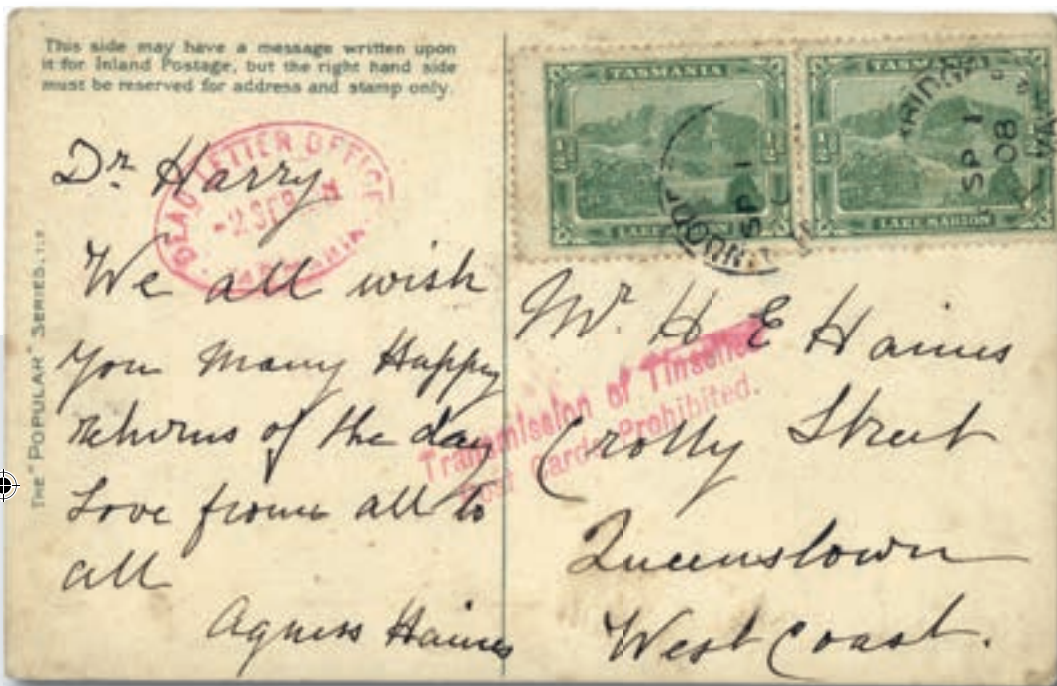 This side may have a message written upon
it for Inland Postage, but the right hand side
must be reserved for address and stamp only.
THE "POPULAR" SERIES.
DEAD LETTER OFFICE
-2 SEP
Dr Harry
We all wish
you many Happy
returns of the day
Love from all to
all
Agness Haines
TASMANIA
½d
½d
LAKE MARION
TASMANIA
½d
½d
LAKE MARION
SP 1
SP 1
08
Mr. H E Haines
Transmission of Tinselled
Post Cards Prohibited.
Crotty Street
Queenstown
West Coast.